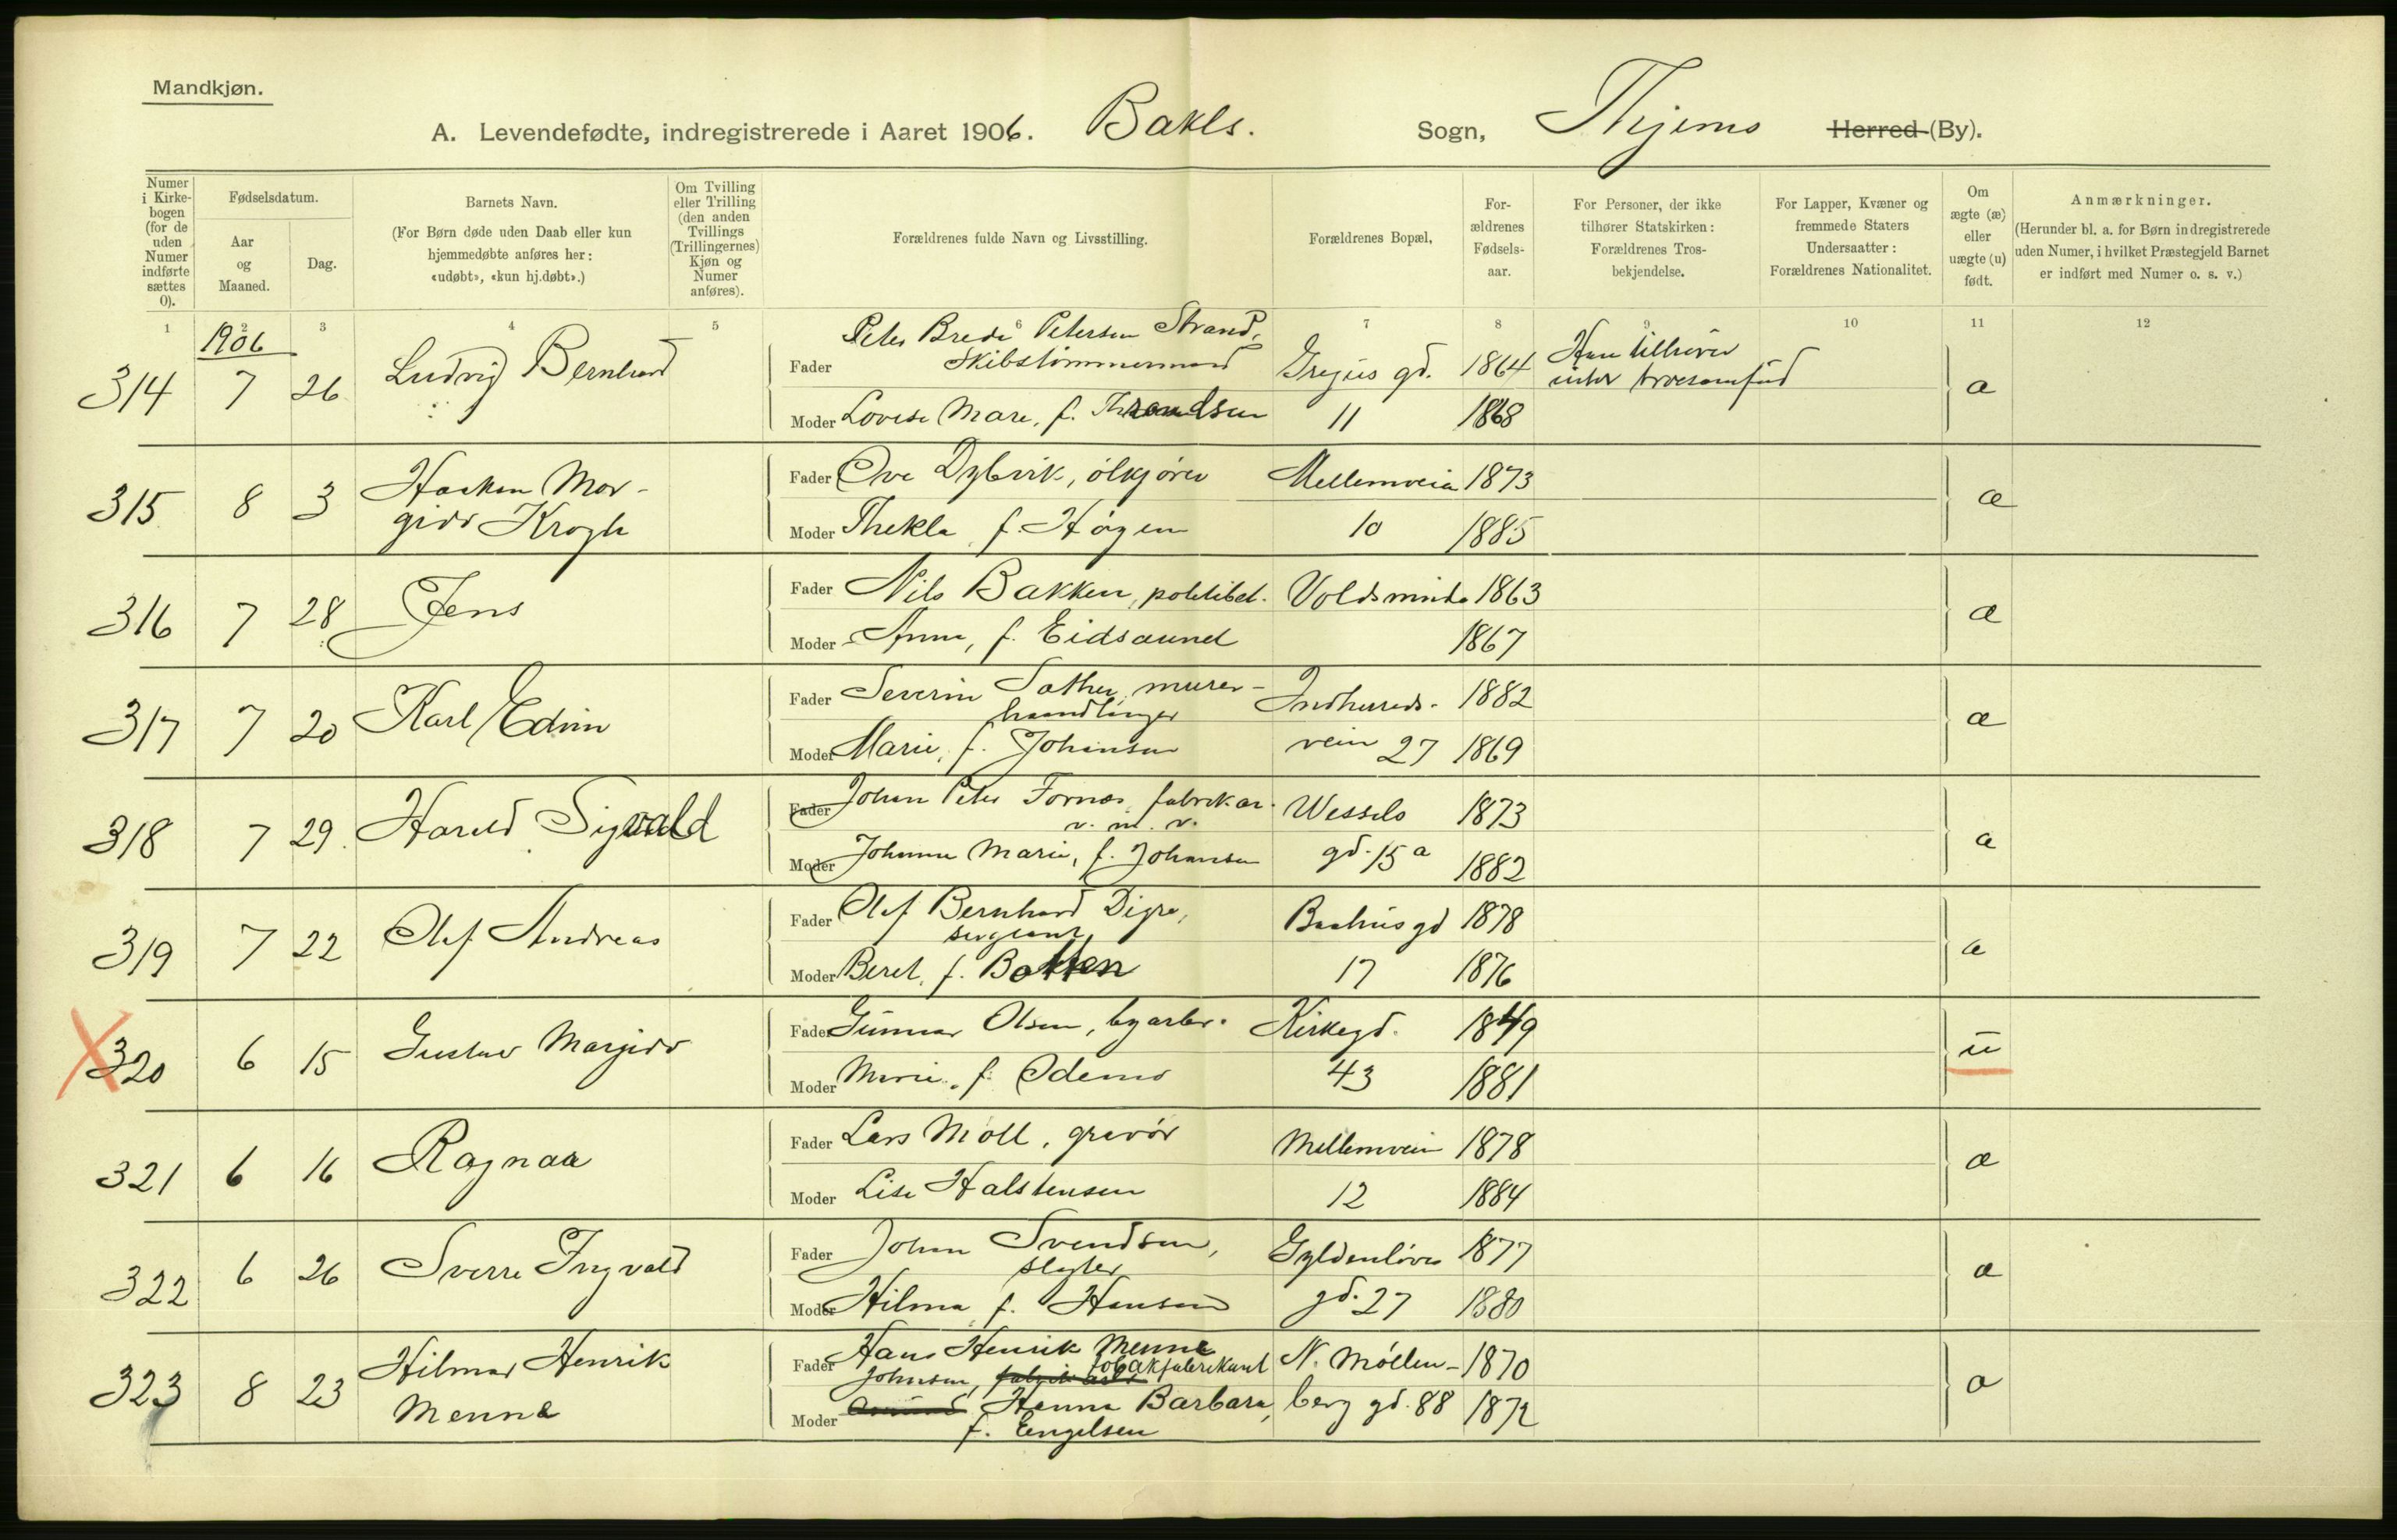 Mandkjøn.
A. Levendefødte, indregistrerede i Aaret 1906. Bakls. Sogn, Thjems Herred (By).
Numer i Kirkebogen (for de uden Numer indførte sættes 0).
Fødselsdatum.
Aar og Maaned.
Dag.
Barnets Navn.
(For Børn døde uden Daab eller kun hjemmedøbte anføres her: «udøbt», «kun hj.døbt».)
Om Tvilling eller Trilling (den anden Tvillings (Trillingernes) Kjøn og Numer anføres).
Forældrenes fulde Navn og Livsstilling.
Forældrenes Bopæl,
Forældrenes Fødselsaar.
For Personer, der ikke tilhører Statskirken: Forældrenes Trosbekjendelse.
For Lapper, Kvæner og fremmede Staters Undersaatter: Forældrenes Nationalitet.
Om ægte (æ) eller uægte (u) født.
Anmærkninger.
(Herunder bl. a. for Børn indregistrerede uden Numer, i hvilket Præstegjeld Barnet er indført med Numer o. s. v.)
1 2 3 4 5 6 7 8 9 10 11 12
1906
314 7 26 Ludvig Bernhard
Fader Peter Brede Petersen Strand,
Skibstømmermand Grejus gd. 1864
Moder Lovise Mare, f. 11 1868
æ
315 8 3 Haakon Mar-
gido Krogh
Fader Ove Dybvik, ølkjører Mellemveien 1873
Moder Thekla f. Høgen 10 1885
æ
316 7 28 Jens
Fader Nils Bakken, politibet. Voldsminde 1863
Moder Anna, f. Eidsaunet 1867
æ
317 7 20 Karl Edvin
Fader Severin Sæther, murer-
haandlanger Indherreds- 1882
Moder Marie, f. Johansen veien 27 1869
æ
318 7 29 Harald Sigvald
Fader Johan Peter Fornæs, fabrikar.
v. m. v. Wessels 1873
Moder Johanna Marie, f. Johansen gd. 15 a 1882
æ
319 7 22 Olaf Andreas
Fader Olaf Bernhard Digre,
sergeant Baahus gd 1878
Moder Beret, f. Batten 17 1876
æ
320 6 15 Gustav Margido
Fader Gunnar Olsen, byarb. Kirkegd. 1849
Moder Marie, f. Ødemo 43 1881
u
321 6 16 Ragnar
Fader Lars Moll, gravør Mellemveien 1878
Moder Lise Halstensen 12 1884
æ
322 6 26 Sverre Ingvald
Fader Johan Svendsen,
slagter Gyldenløves 1877
Moder Hilma f. Hansen gd. 27 1880
æ
323 8 23 Hilmar Henrik
Menne
Fader Hans Henrik Menne
Johnsen, tobakfabrikant N. Møllen- 1870
Moder Hanna Barbara, berg gd. 88 1872
f. Engelsen
æ